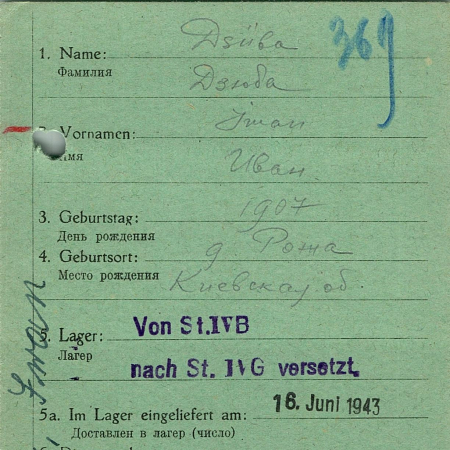 369
Dsüba
1. Name:
Фамилия
Дзюба
2. Vornamen: Iwan
Имя
Иван
3. Geburtstag: 1907
День рождения
4. Geburtsort: д Рожа
Место рождения Киевская об.
5. Lager: Von St.IVB
Лагер
nach St. IVG versetzt.
5a. Im Lager eingeliefert am: 16. Juni 1943
Доставлен в лагер (число)
Iwan